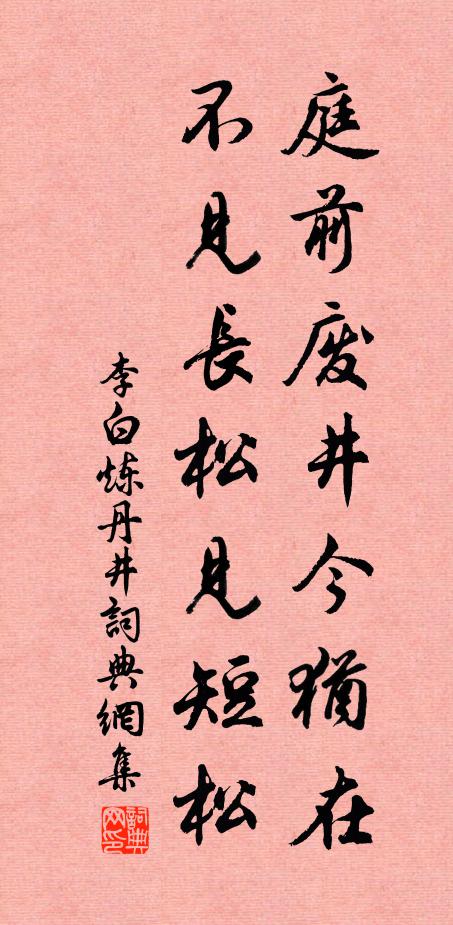 庭前废井今犹在
不見長松見短松
李白炼丹井詞典網集
詞典网印